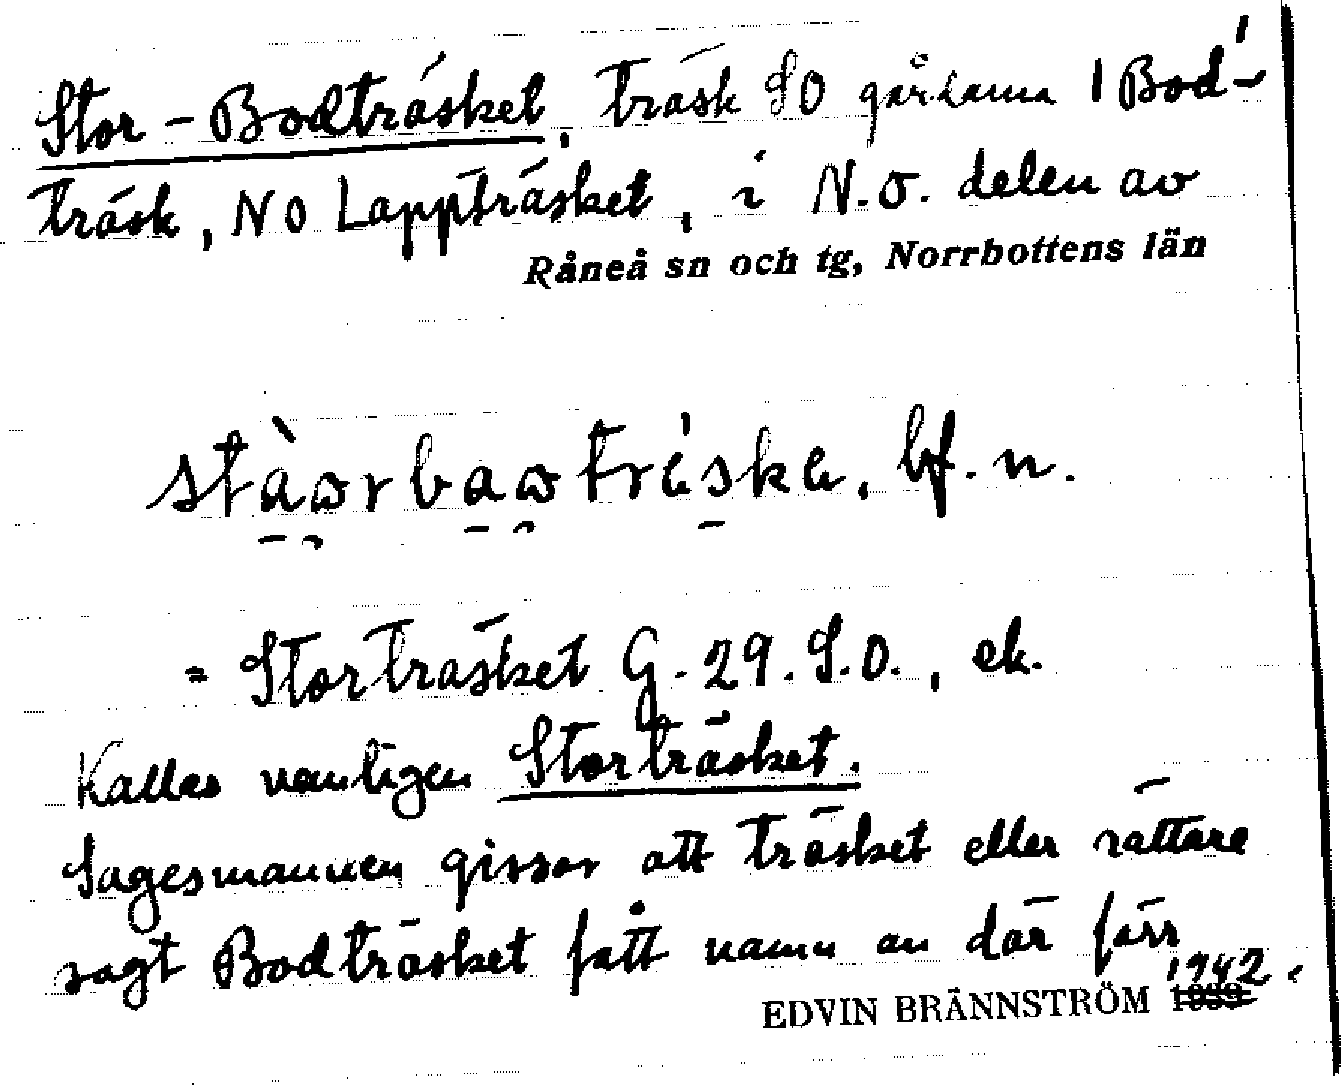 Stor-Bodträsket, träsk SO gårdarna i Bod-
träsk, NO Lappträsket, i N.O. delen av
Råneå sn och tg, Norrbottens län
bf. n.
= Storträsket G. 29. S.O., ek.
Kallas vanligen Storträsket.
Sagesmannen gissar att träsket eller rättare
sagt Bodträsket fått namn av där förr
1942.
EDVIN BRÄNNSTRÖM 1939